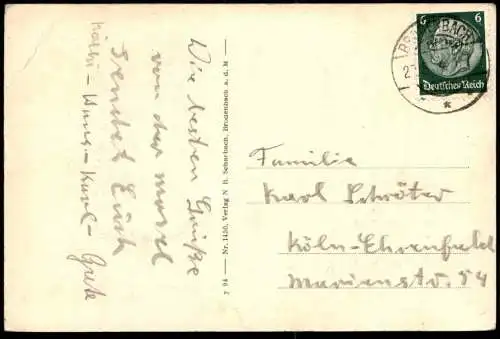 Die besten Grüße
von der Mosel
sendet Euch
Hans - Karl - Grete
Nr. 1450, Verlag N. B. Scherbach, Brodenbach a. d. M
6 6
Deutsches Reich
Familie
Karl Schröter
Köln-Ehrenfeld
Marienstr. 54